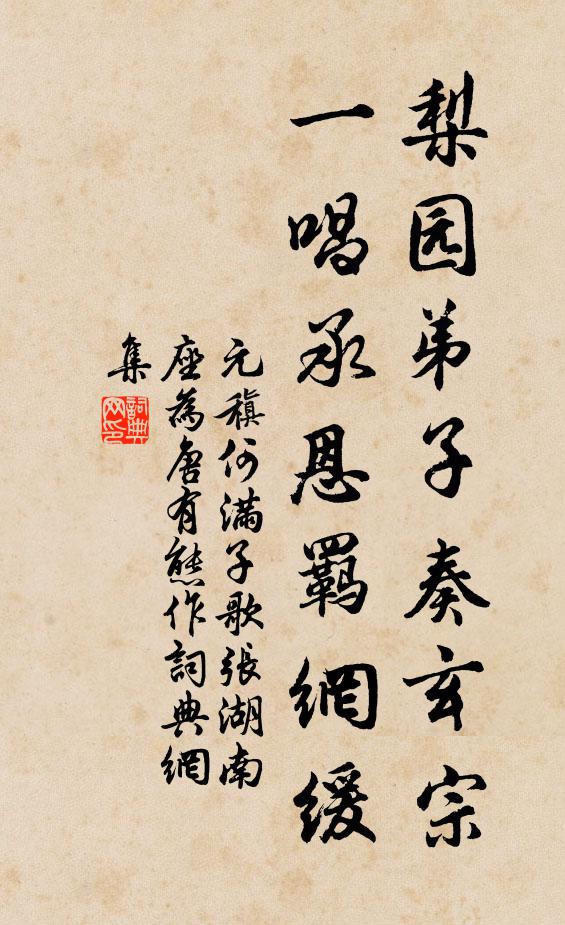 梨园弟子奏玄宗
一唱承恩羁網缓
元稹何满子歌张湖南
座為唐有熊作词典網
集
詞典
网印